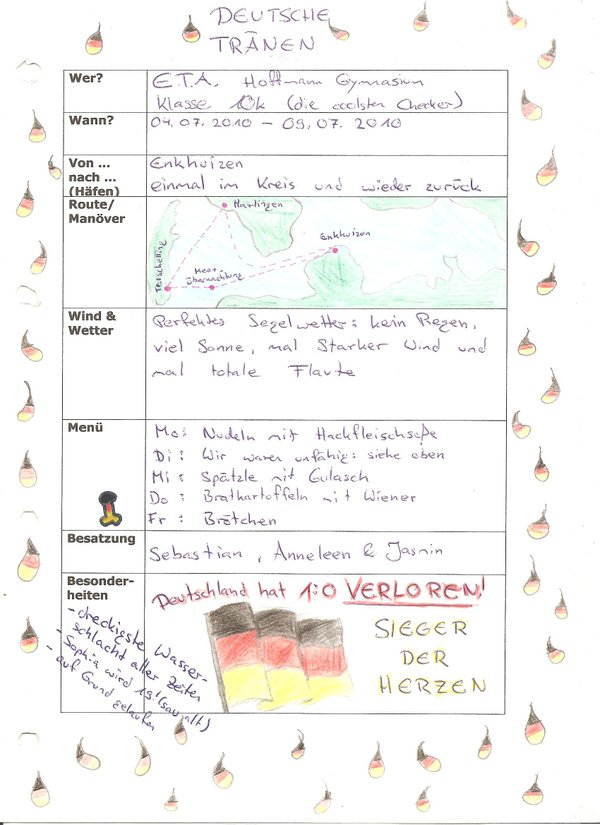 DEUTSCHE
TRÄNEN
Wer?
E.T.A. Hoffmann Gymnasium
Klasse 10k (die coolsten Checker)
Wann?
04.07.2010 – 09.07.2010
Von ...
nach ...
(Häfen)
Enkhuizen
einmal im Kreis und wieder zurück
Route/
Manöver
Harlingen
Enkhuizen
Terschelling
Meer-
übernachtung
Wind &
Wetter
Perfektes Segelwetter: kein Regen,
viel Sonne, mal Starker Wind und
mal totale Flaute
Menü
Mo: Nudeln mit Hackfleischsoße
Di: Wir waren unfähig: siehe oben
Mi: Spätzle mit Gulasch
Do: Bratkartoffeln mit Wiener
Fr: Brötchen
Besatzung
Sebastian, Anneleen & Jasmin
Besonder-
heiten
Deutschland hat 1:0 VERLOREN!
SIEGER
DER
HERZEN
- dreckigste Wasser-
schlacht aller Zeiten
- Sophia wird 19! (sau alt)
- auf Grund gelaufen